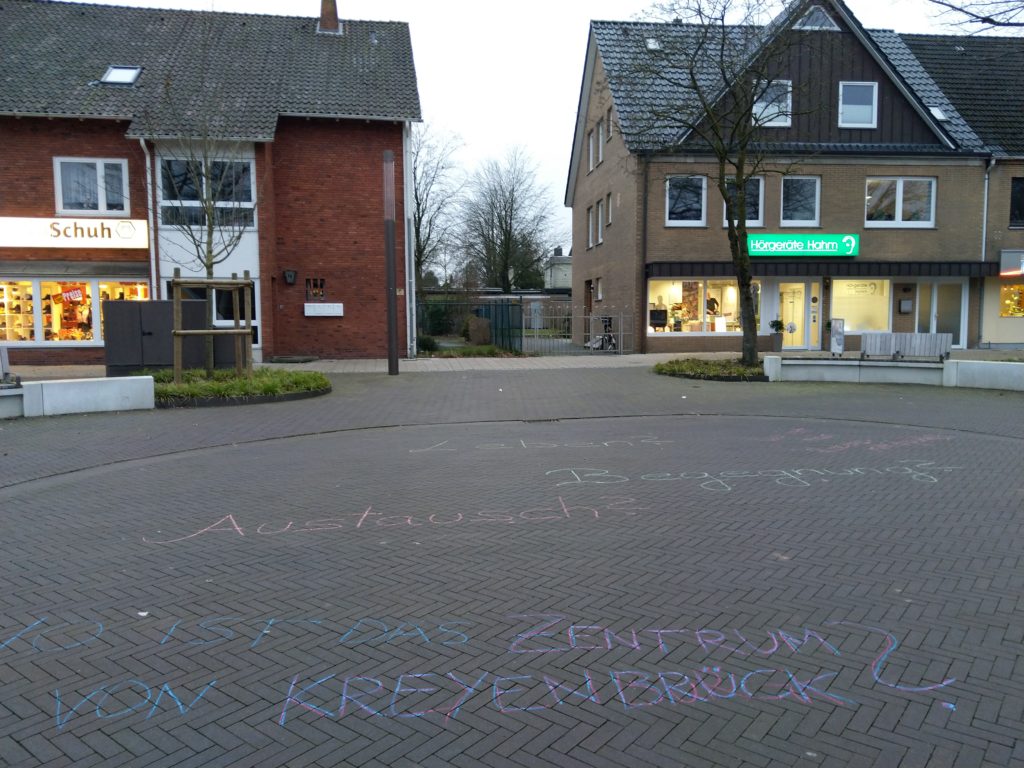 Schuh
Hörgeräte Hahm
Lebens?
Begegnung?
Austausch?
WO IST DAS ZENTRUM
VON KREYENBRÜCK?